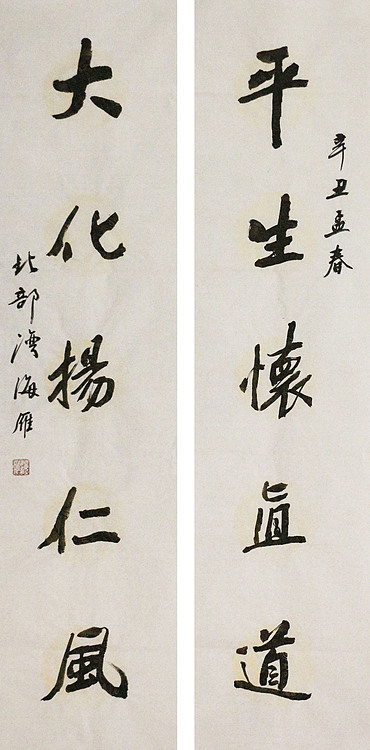 辛丑孟春
平生懷真道
大化揚仁風
北部灣海雁